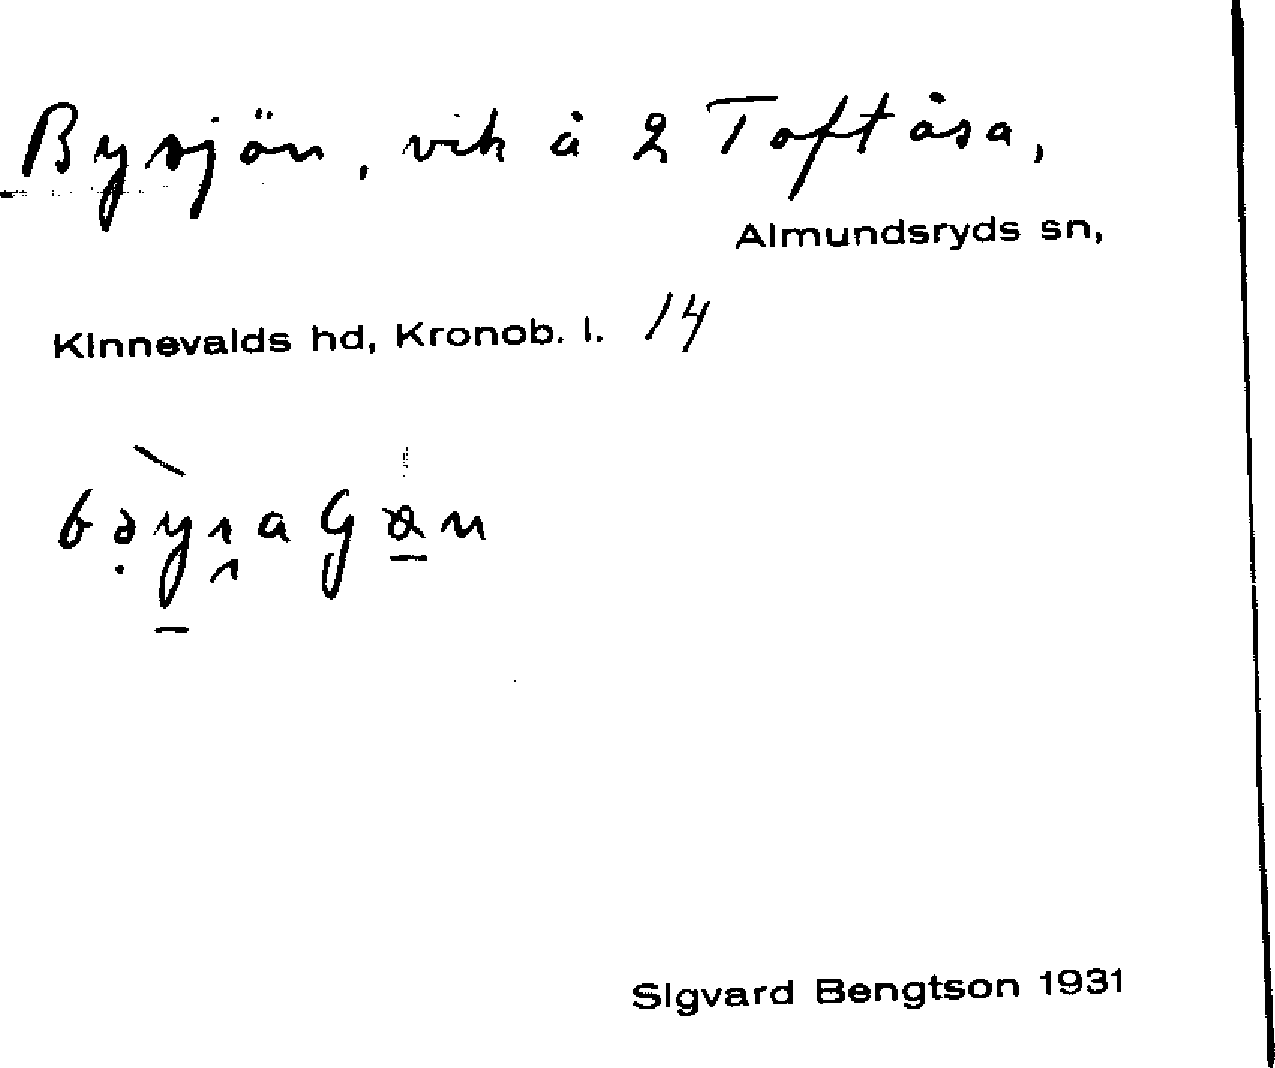 Bysjön, vik å 2 Toftåsa,
Almundsryds sn,
Kinnevalds hd, Kronob. l. 14
Sigvard Bengtson 1931